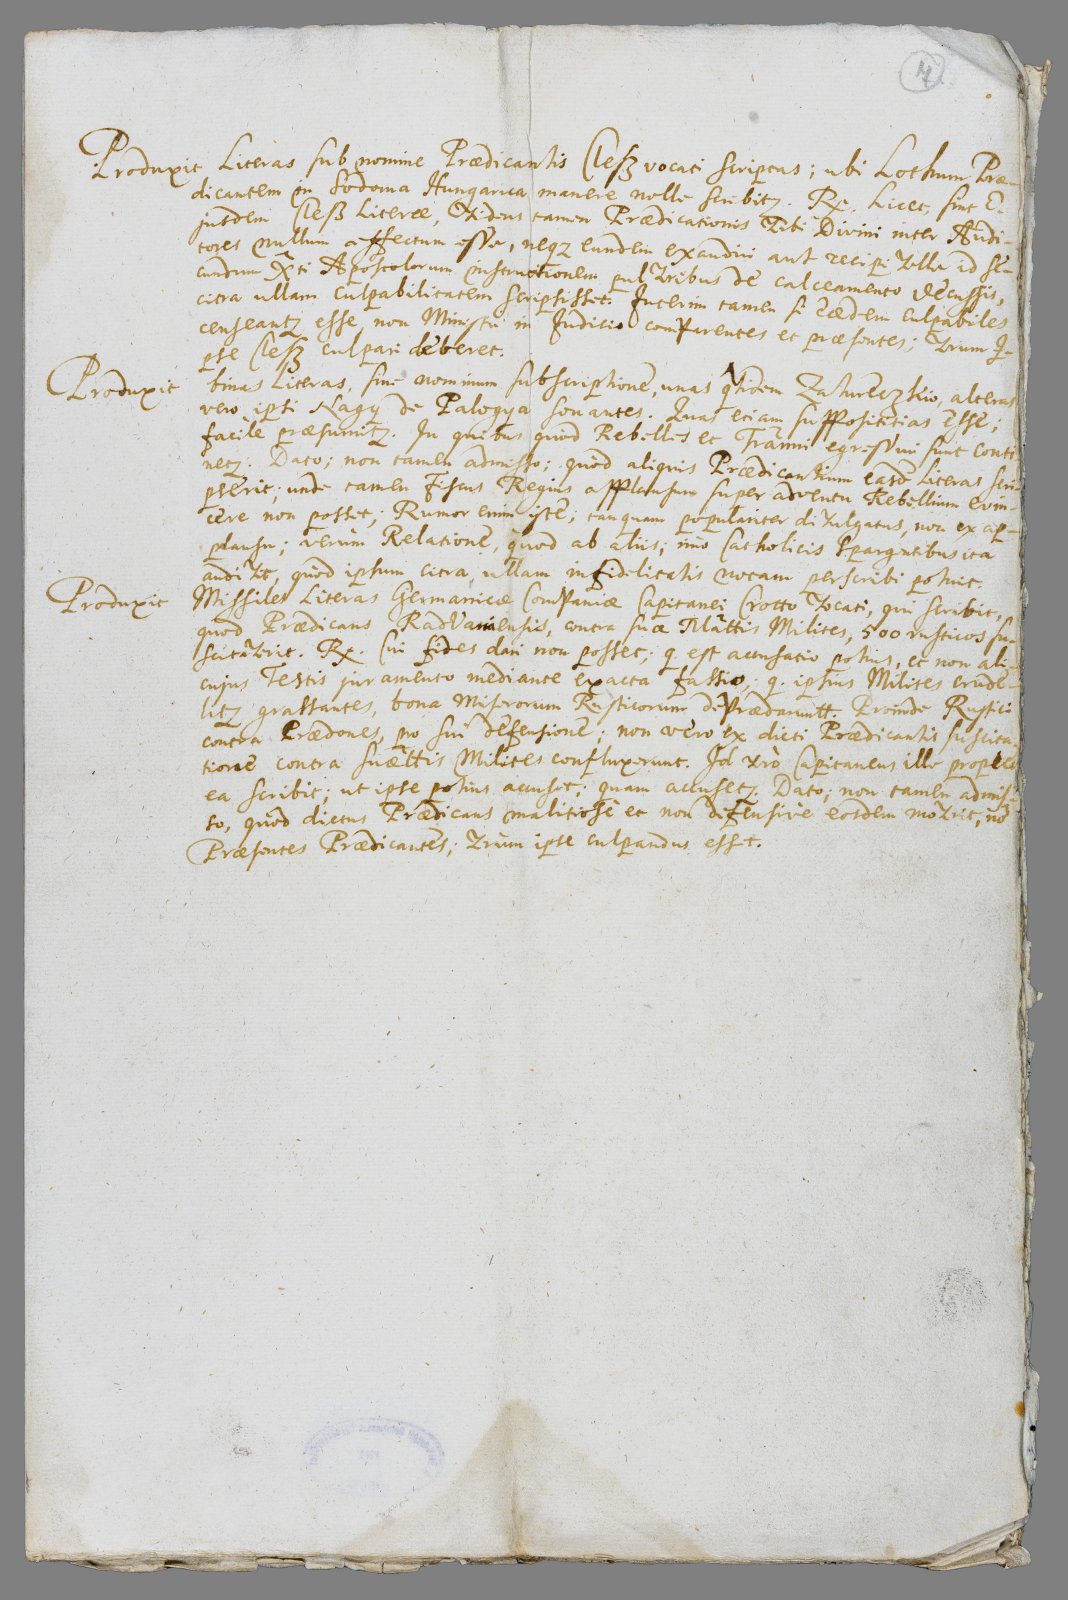 4
Produxit Literas sub nomine Prædicantis Cleß vocati scriptas; ubi Lothum Præ-
dicantem in Sodoma Hungarica manere nolle scribitz. Rx. Licet, sint E-
jusdem Cleß Literæ, Videns tamen Prædicationis Vbi Divini inter Audi-
tores nullum affectum esse, neqz eundem exaudiri aut recipi velle id se-
cundum Xti Apostolorum instructionem pulveribus de calceamento decussis,
citra ullam culpabilitatem scripsisset. Interim tamen si eædem culpabiles
censeantz esse, non Ministri in Judicio comparentes et præsentes; verum I-
pse Cleß culpari deberet.
Produxit binas Literas, sine nominum subscriptione, unas qtidem Zathureczkio, alteras
vero ipsi Nagy de Palogya sonantes. Quas etiam supposititias esse,
facile præsumitz. In quibus quod Rebelles et Tranni egressuri sint conti
netz. Dato; non tamen admisso; quod aliquis Prædicantium easd Literas scri-
pserit; unde tamen Fiscus Regius applausum super adventu Rebellium evin-
cere non posset; Rumor enim iste; tanquam populariter divulgatus, non ex ap-
plausu; verum Relatione, quod ab aliis; imo Catholicis spargentibus ita
audivit, quod ipsum citra ullam infidelitatis notam perscribi potuit.
Produxit Missiles Literas Germanicæ Companiæ Capitanei Crotto vocati, qui scribit,
quod Prædicans Radvaniensis, contra suæ Mattis Milites, 500 rusticos su-
scitaverit. Rx. Cui fides dari non posset; q. est accusatio potius, et non ali-
cujus Testis juramento mediante exacta fassio; q. ipsius Milites crude-
litz grassantes, bona Miserorum Rusticorum deprædaruntt. Proinde Rustici
contra Prædones, pro sui defensione; non vero ex dicti Prædicantis suscita-
tione contra suæ Mttis Milites confluxerunt. Id vrò Capitaneus ille propter
ea scribit; ut ipse potius accuset; quam accusetz. Dato; non tamen admis-
so, quod dictus Prædicans malitiosè et non defensivè eosdem movrit, no
Præsentes Prædicantes; vrum ipse culpandus esset.